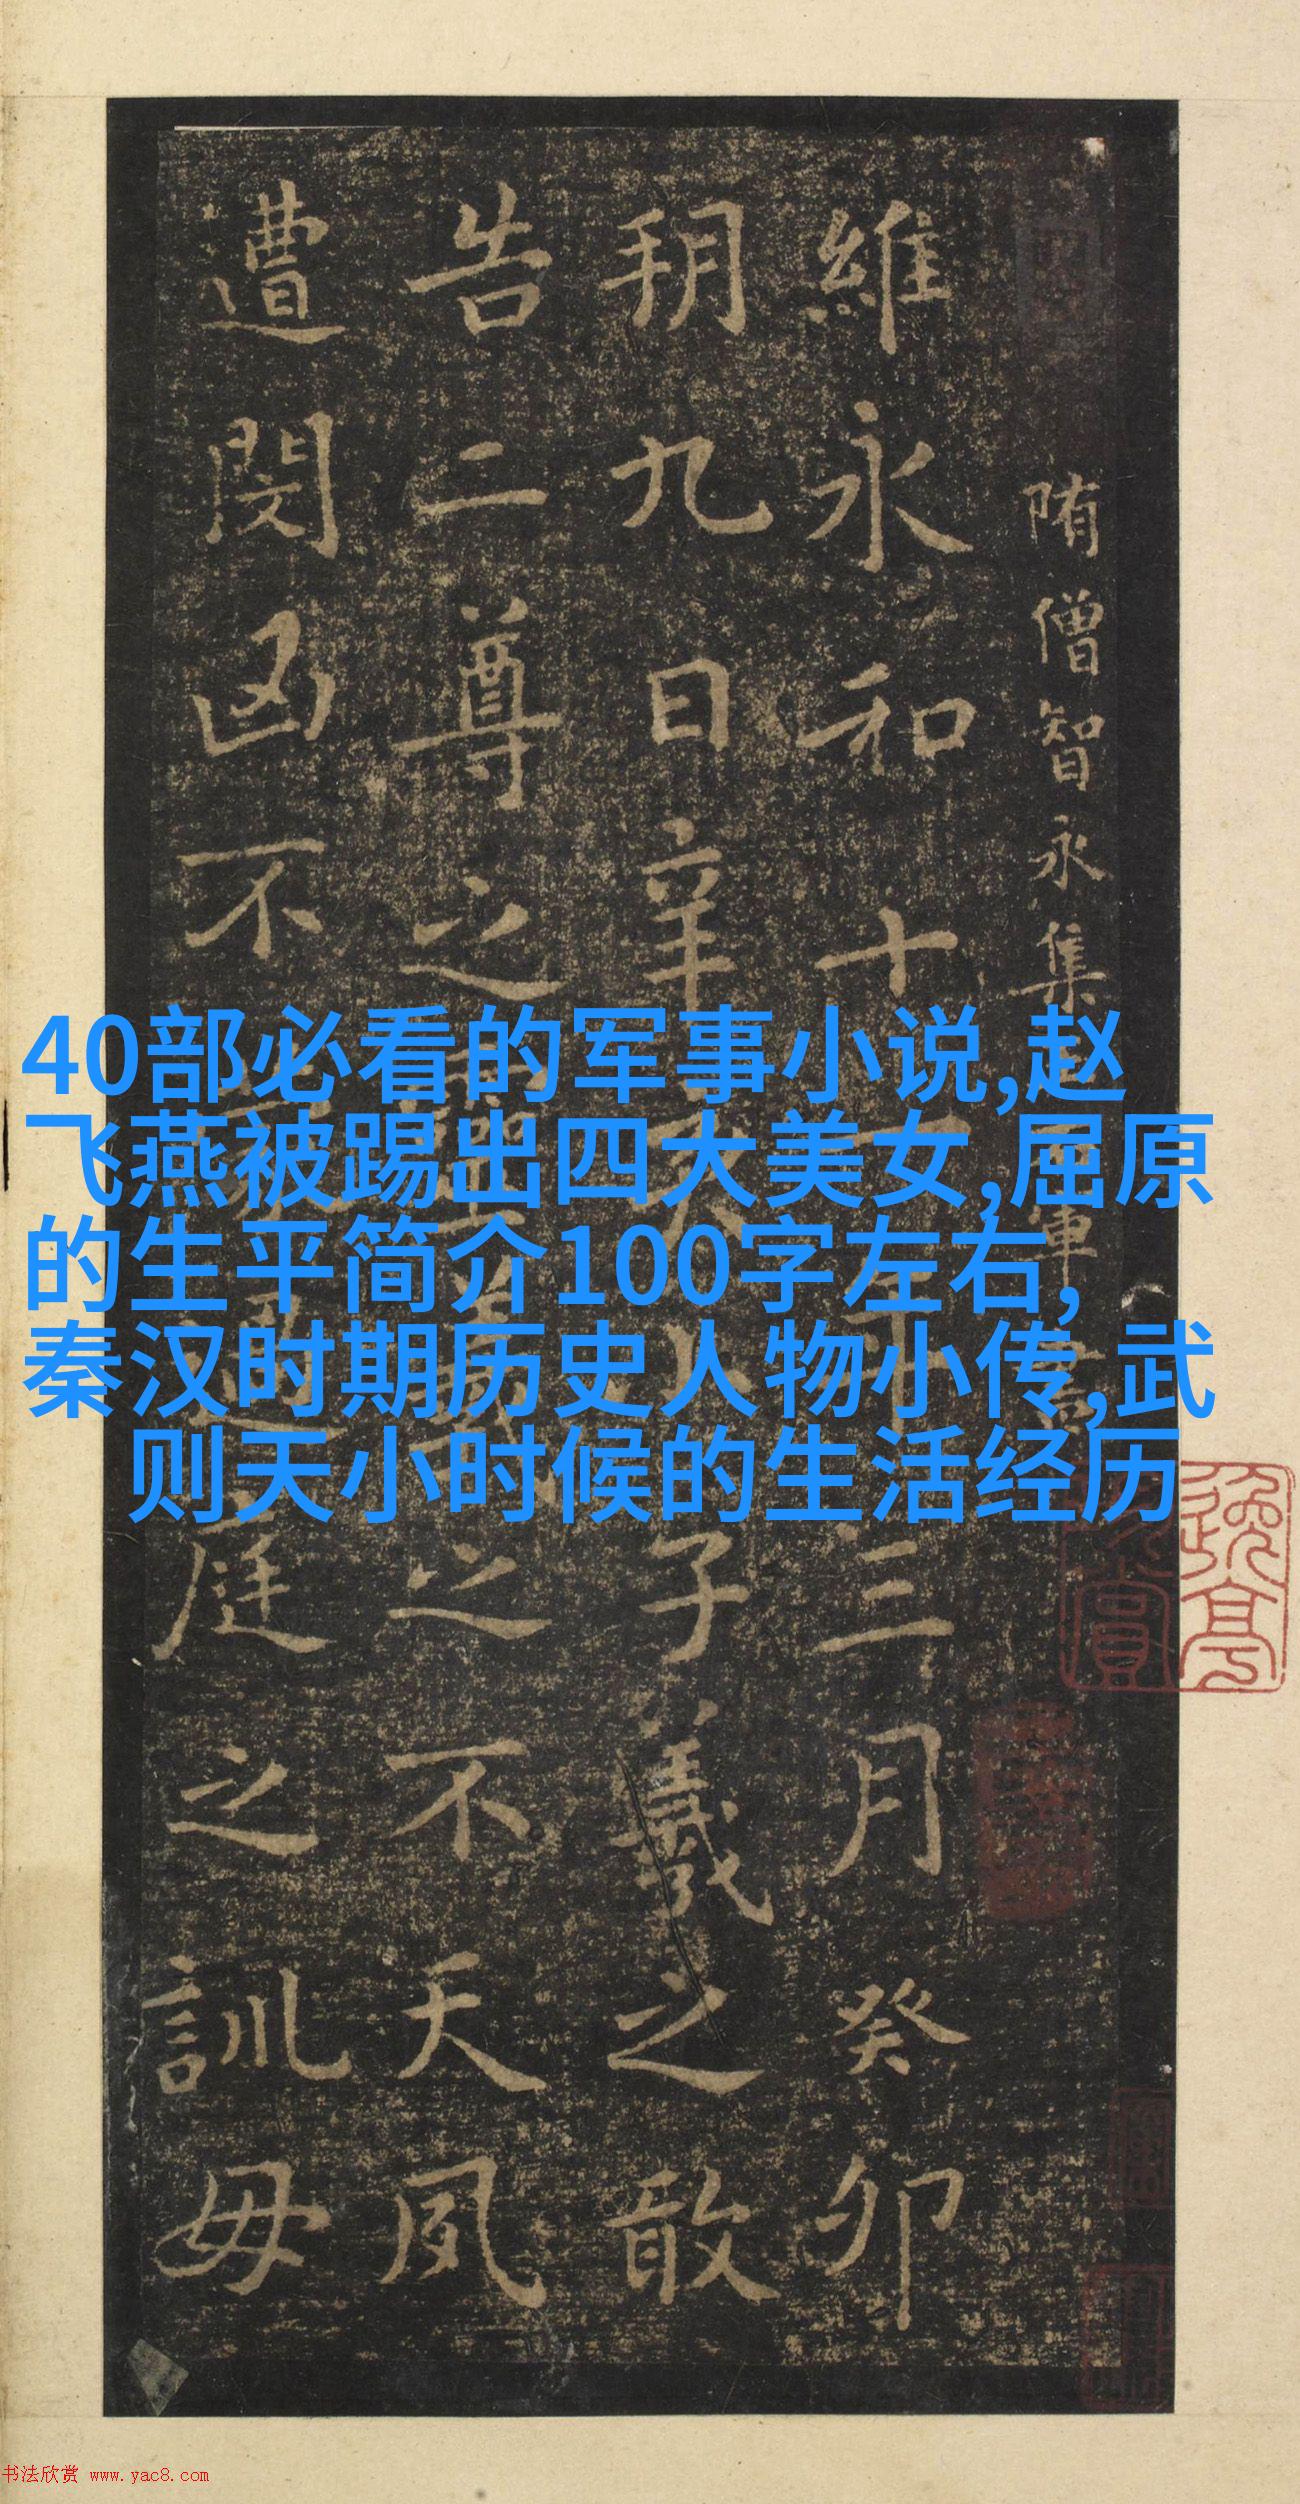 隋僧智永集
維永和十一年三月癸卯
朔九日辛
子羲之敢
告二尊之靈羲之不天夙
遭閔凶不
庭之訓毋
40部必看的军事小说,赵
飞燕被踢出四大美女,屈原
的生平简介100字左右,
秦汉时期历史人物小传,武
则天小时候的生活经历
书法欣赏 www.yac8.com